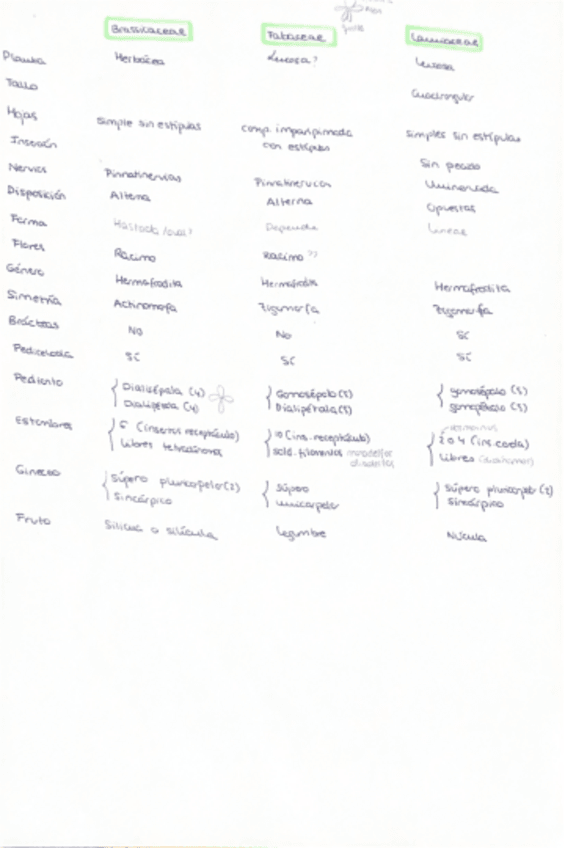 Brassicaceae Fabaceae Lamiaceae
Planta Herbácea Leñosa? Leñosa
Tallo Cuadrangular
Hojas simple sin estípulas comp. imparipinnada con estípulas simples sin estípulas
Inserción Sin peciolo
Nervios Pinnatinervias Pinnatinervias Uninervada
Disposición Alterna Alterna Opuestas
Forma Hastada /oval? Depende Linear
Flores Racimo Racimo ??
Género Hermafrodita Hermafrodita Hermafrodita
Simetría Actinomorfa Zigomorfa Zigomorfa
Brácteas No No Sí
Pedicelada Sí Sí Sí
Perianto Dialisépala (4) Gamosépalo (5) gamosépalo (5)
Dialipétala (4) Dialipétala (5) gamopétalo (5)
Estambres 6 (insertos receptáculo) 10 (ins. receptáculo) 2 o 4 (ins. corola)
Libres tetradínamos sold. filamentos Libres (didínamos)
Gineceo Súpero pluricarpelar (2) Súpero Súpero pluricarpelar (2)
Sincárpico Unicarpelar Sincárpico
Fruto Silicua o silícula Legumbre Núcula